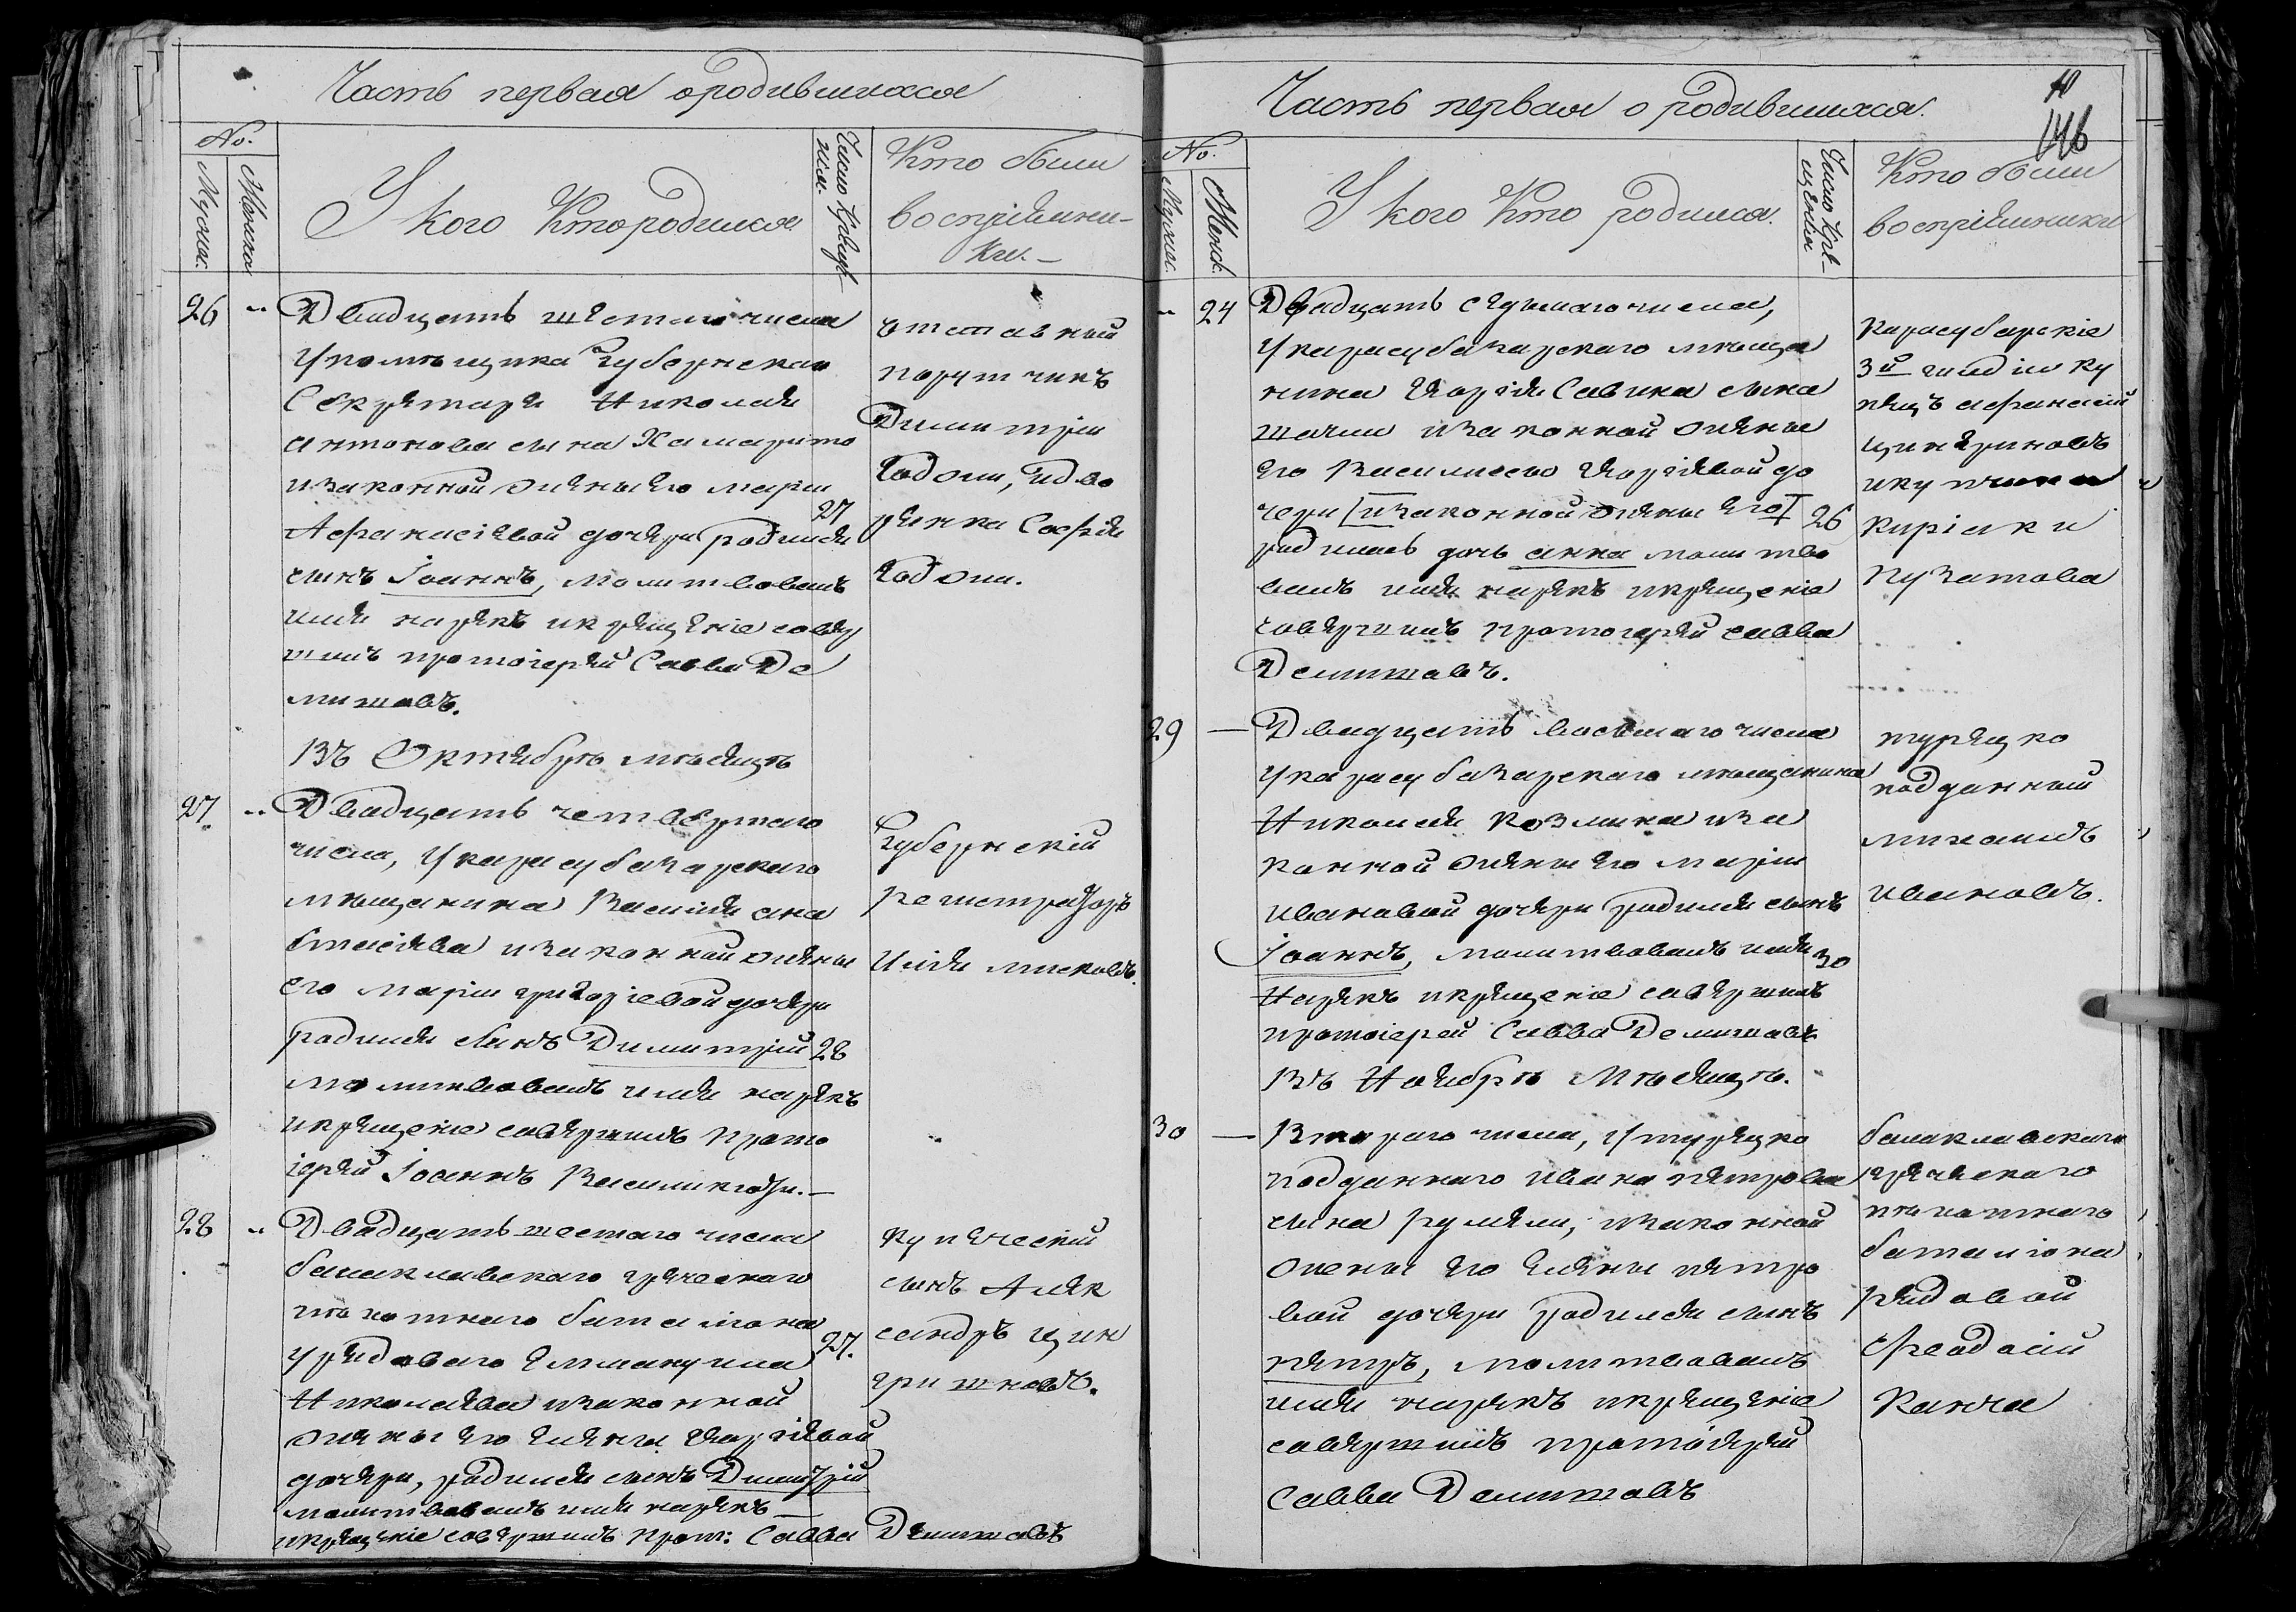 Часть первая о родившихся
No.
Мужеск.
Женска
У кого Кто родился
Число Крещенія.
Кто были
воспріемни-
ки.
26
Двадцать шестаго числа
у помѣщика Губернскаго
Секретаря Николая
Антонова сына Хамарито
и законной жены его маріи
27
Афанасіевой дочери родился
сынъ Іоаннъ, молитвовалъ
имя нарекъ и крещеніе совер
шилъ протоіерей Савва Де
мишовъ.
отставный
поручикъ
Димитрій
дво
рянка Софія
Въ Октябрѣ мѣсяцѣ
27
Двадцать четвертаго
числа, у карасубазарскаго
мѣщанина Василія ана
стасіева и законной жены
его маріи григоріевой дочери
родился сынъ Димитрій 28
молитвовалъ имя нарекъ
и крещеніе совершилъ прото
іерей Іоаннъ
Губернскій
регистраторъ
Илія
28
Двадцать шестаго числа
балаклавскаго греческаго
пѣхотнаго баталіона
у рядоваго Еммануила
27.
Николаева и законной
жены его Елены Георгіевой
дочери, родился сынъ Димитрій
молитвовалъ имя нарекъ
и крещеніе совершилъ прот: Савва Демишовъ
купеческій
сынъ Алек
сандръ цин
Часть первая о родившихся.
10
146
No.
Мужеск.
Женск.
У кого Кто родился.
Число Кре-
щенія
Кто были
воспріемники
24
Двадцать седьмаго числа,
у карасубазарскаго мѣща
нина Георгія Савина сына
и законной жены
его Василисы Георгіевой до
чери [и законной жены его] 26
родилась дочь анна молитво
валъ имя нарекъ и крещеніе
совершилъ протоіерей савва
Демишовъ.
Карасубазскіе
3й гильдіи ку
пецъ афанасій
и купчиха
Киріаки
29
Двадцать восьмаго числа
у карасубазарскаго мѣщанина
Николая Козлина и за
конной жены его маріи
ивановой дочери родился сынъ
Іоаннъ, молитвовалъ имя 30
Нарекъ и крещеніе совершилъ
протоіерей Савва Демишовъ
турецко
подданный
михаилъ
ивановъ.
Въ Ноябрѣ Мѣсяцѣ.
30
Втораго числа, у турецко
подданнаго ивана петрова
сына и законной
жены его Елены петро
вой дочери родился сынъ
петръ, молитвовалъ
имя нарекъ и крещеніе
совершилъ протоіерей
Савва Демишовъ
балаклавскаго
греческаго
пѣхотнаго
баталіона
рядовой
Феодосій
Канча